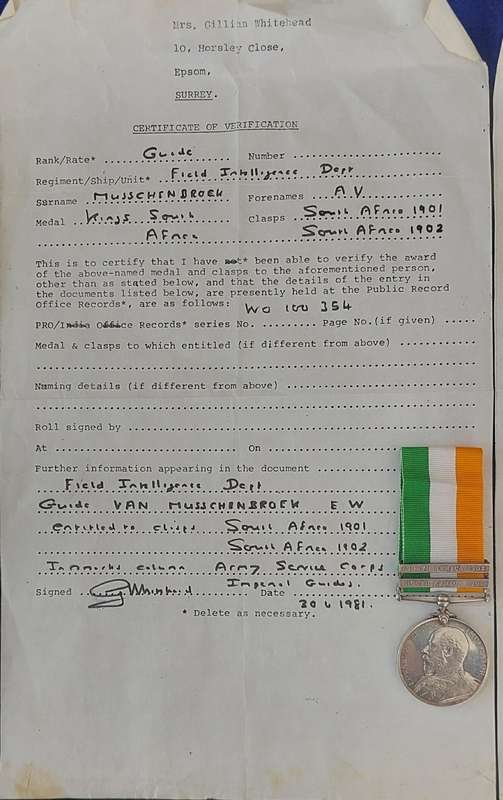 Mrs. Gillian Whitehead
10, Horsley Close,
Epsom,
SURREY.
CERTIFICATE OF VERIFICATION
Rank/Rate* .... Guide .... Number ....
Regiment/Ship/Unit* .. Field Intelligence Dept ....
Surname MUSSCHENBROEK .... Forenames .... A V ....
Medal .. Kings South .... Clasps . South Africa 1901
Africa South Africa 1902
This is to certify that I have not* been able to verify the award
of the above-named medal and clasps to the aforementioned person,
other than as stated below, and that the details of the entry in
the documents listed below, are presently held at the Public Record
Office Records*, are as follows: WO 100 354
PRO/India Office Records* series No. ......... Page No.(if given) .....
Medal & clasps to which entitled (if different from above) ............
Naming details (if different from above) ............
Roll signed by ............
At ............ On ............
Further information appearing in the document ............
Field Intelligence Dept
Guide VAN MUSSCHENBROEK E W
entitled to clasps South Africa 1901
South Africa 1902
In remarks column Army Service Corps
Imperial Guides.
Signed .... Date ....
30 4 1981.
* Delete as necessary.